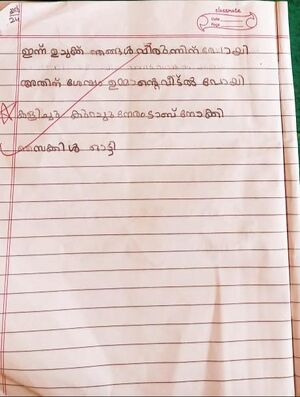 classmate
Date
Page
24
ഇന്ന് ഉച്ചക്ക് ഞങ്ങൾ വിരുന്നിന് പോയി
അതിന് ശേഷം ഉമ്മാന്റെ വീട്ടിൽ പോയി
കളിച്ചു കുറച്ചുനേരം ടാബ് നോക്കി
സൈക്കിൾ ഓട്ടി